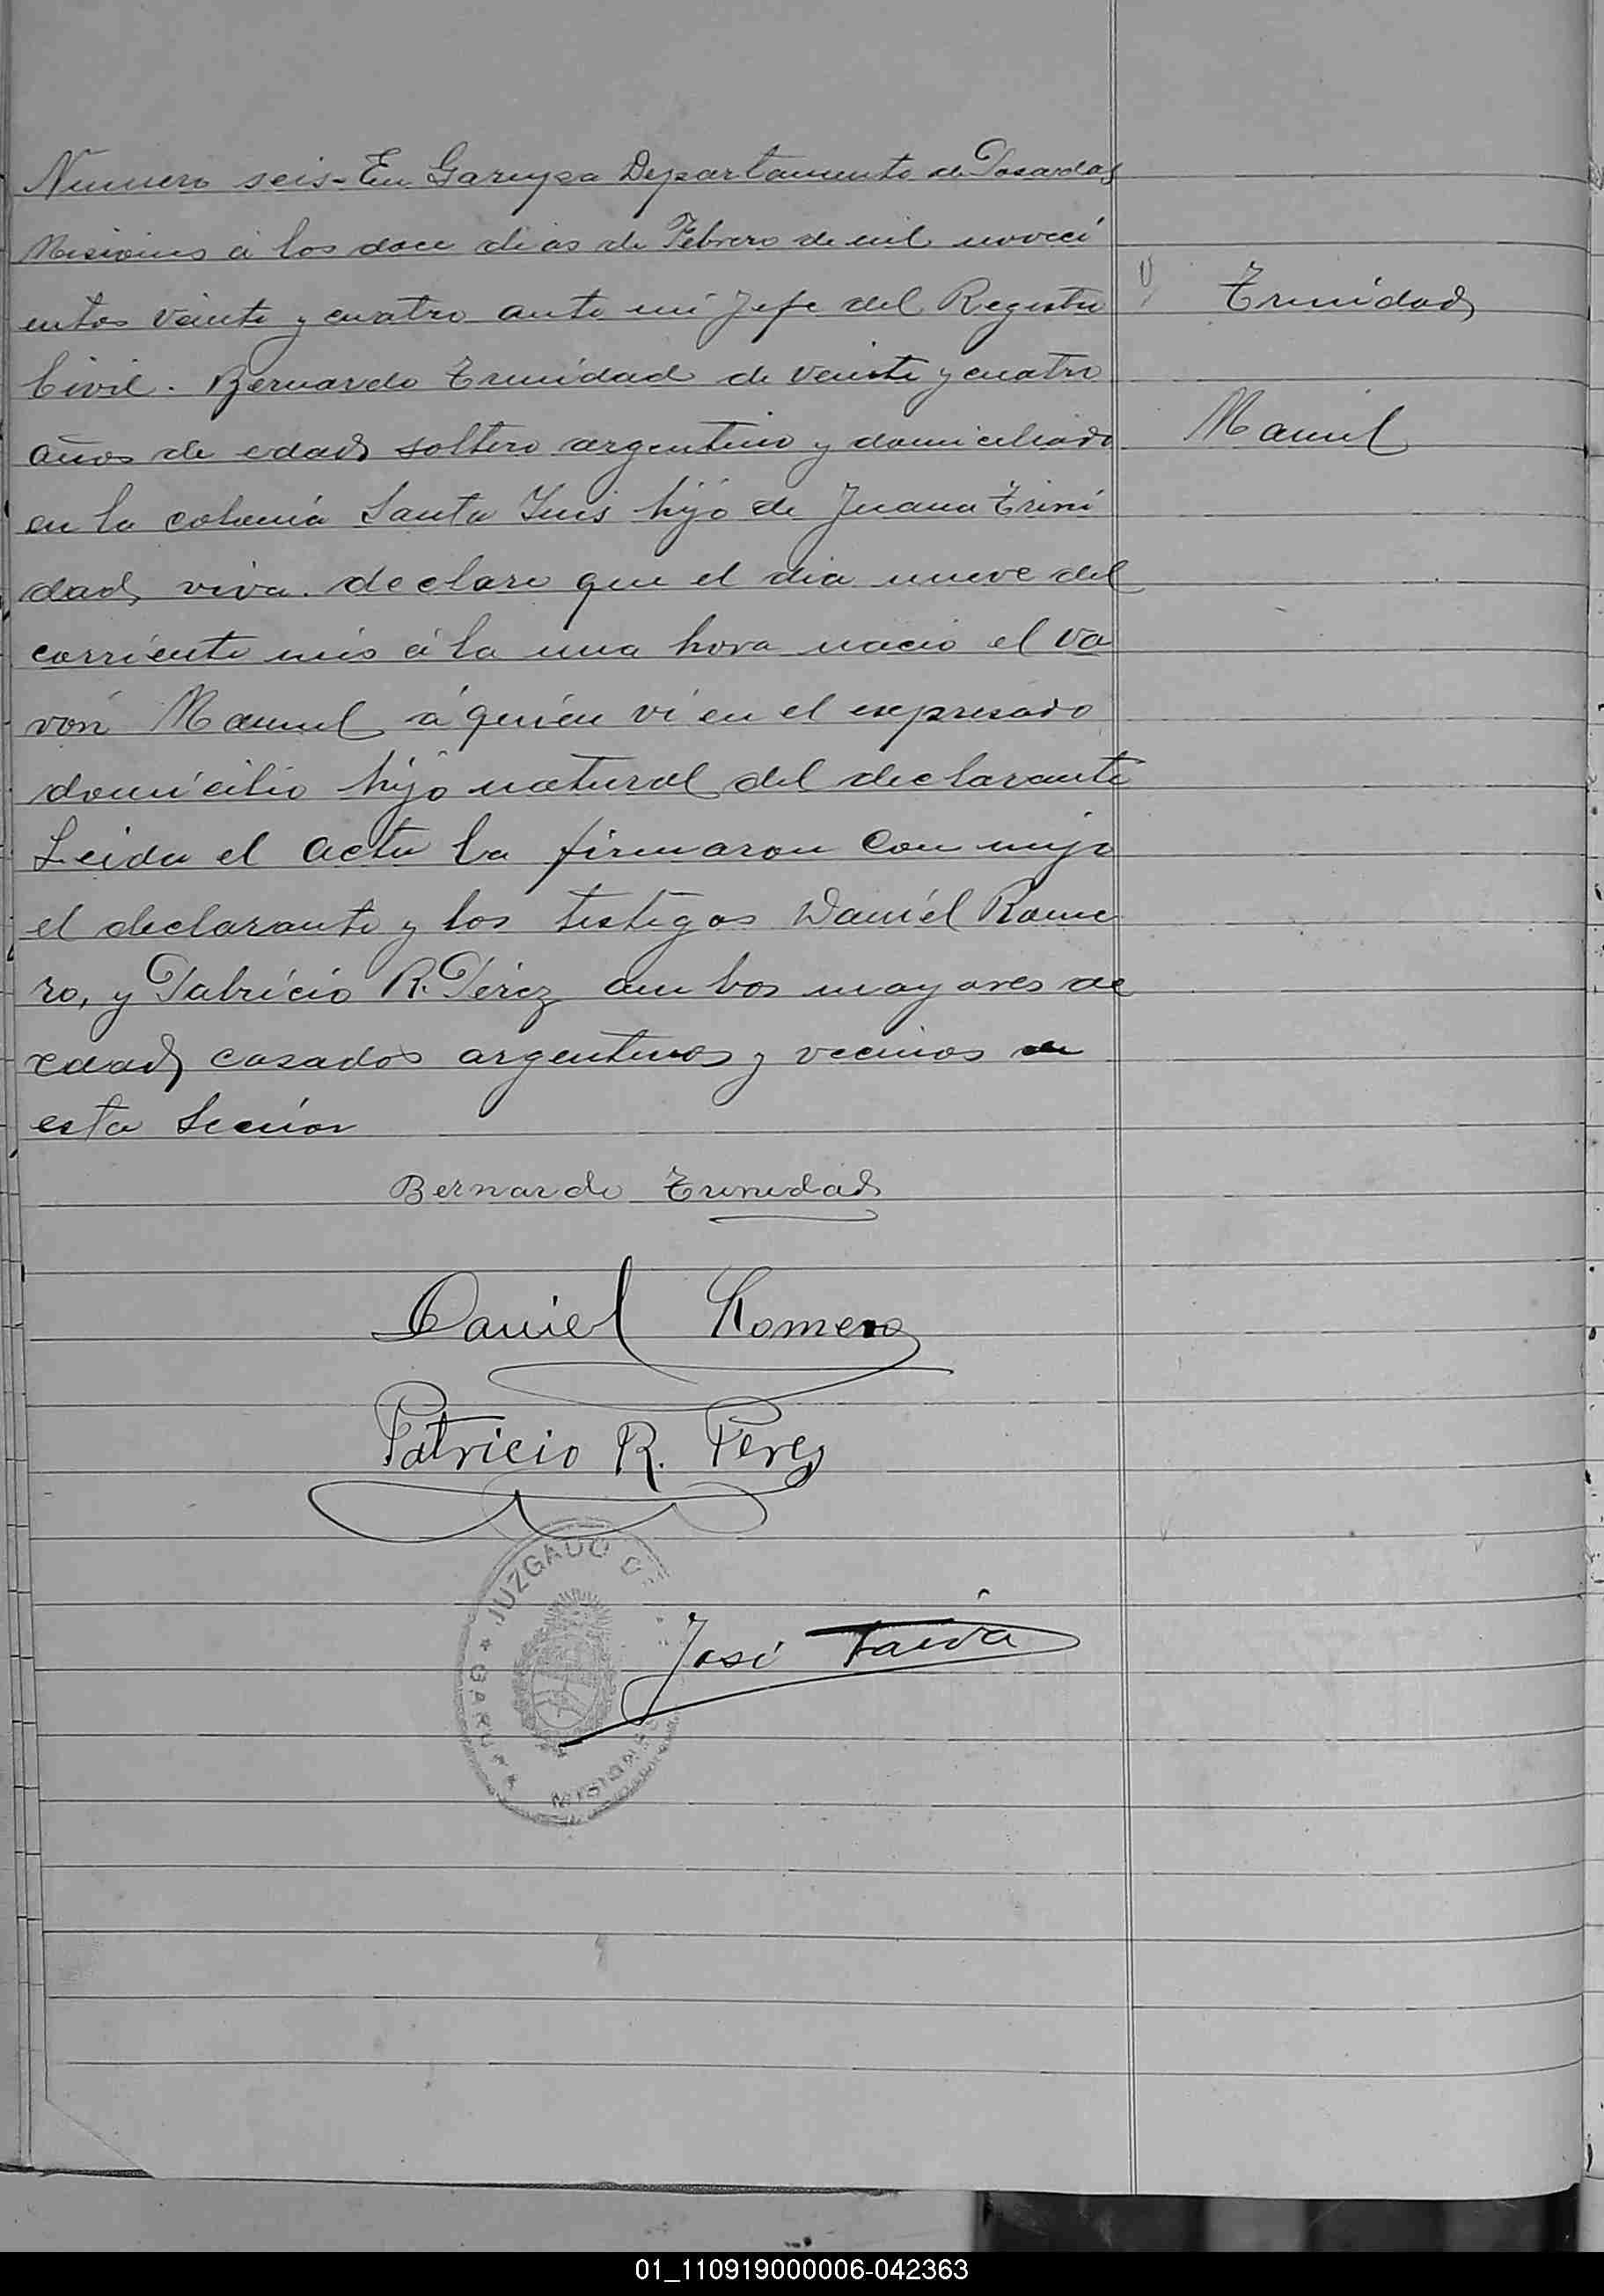 Numero seis - En Garupa Departamento de Posadas
Misiones á los doce dias de Febrero de mil noveci
entos veinte y cuatro ante mi Jefe del Registro
Civil. Bernardo Trinidad de veinte y cuatro
años de edad soltero argentino y domiciliado
en la colonia Santa Ines hijo de Juana Trini
dad, viva. declaro que el dia nueve del
corriente mes á la una hora nacio el va
ron Manuel á quién ví en el expresado
domicilio hijo natural del declarante
Leida el acta la firmaron con migo
el declarante y los testigos Daniel Rome
ro, y Patricio R. Pérez ambos mayores de
edad casados argentinos y vecinos de
esta Sección
Trinidad
Manuel
Bernardo Trinidad
Daniel Romero
Patricio R. Perez
JUZGADO
GARUPA
MISIONES
José
01_110919000006-042363